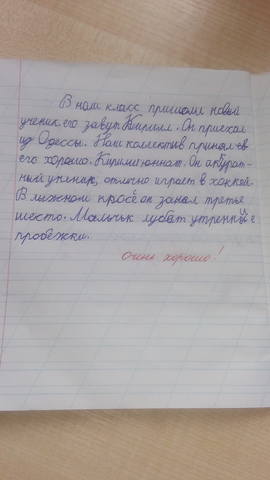 В наш класс пришол новый
ученик его завут Кирилл. Он приехал
из Одессы. Наш коллектив принял ев
его хорошо. Кирилл юннат. Он акурат-
ный ученик, отлично играет в хоккей.
В лыжном кросе он занял третье
место. Мальчик любит утренный е
пробежки.
очень хорошо!